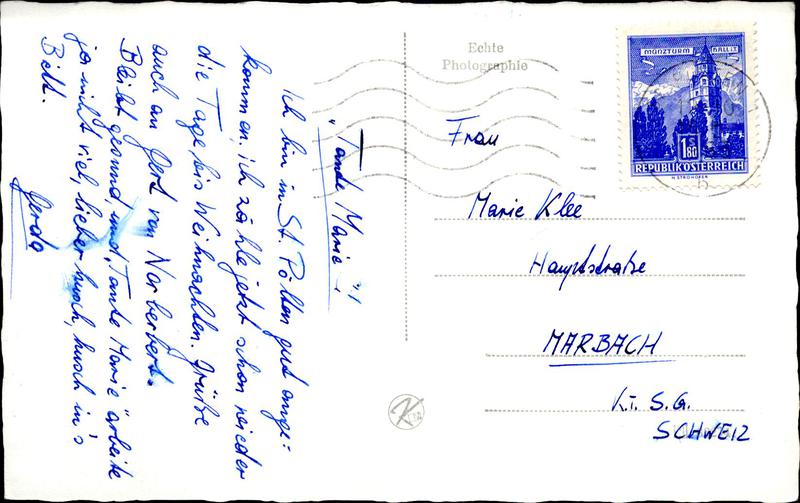 "Tante Marie"!
Ich bin in St. Pölten gut ange-
kommen, ich zähle jetzt schon wieder
die Tage bis Weihnachten. Grüße
auch an Gert von Norbert.
Bleibt gesund, und "Tante Marie" arbeite
ja nicht viel, lieber husch, husch in's
Bett.
Gerda
Echte
Photographie
Frau
Marie Klee
Hauptstraße
MARBACH
Kt. S.G.
SCHWEIZ
MÜNZTURM HALL i.T.
1 S 80
REPUBLIK ÖSTERREICH